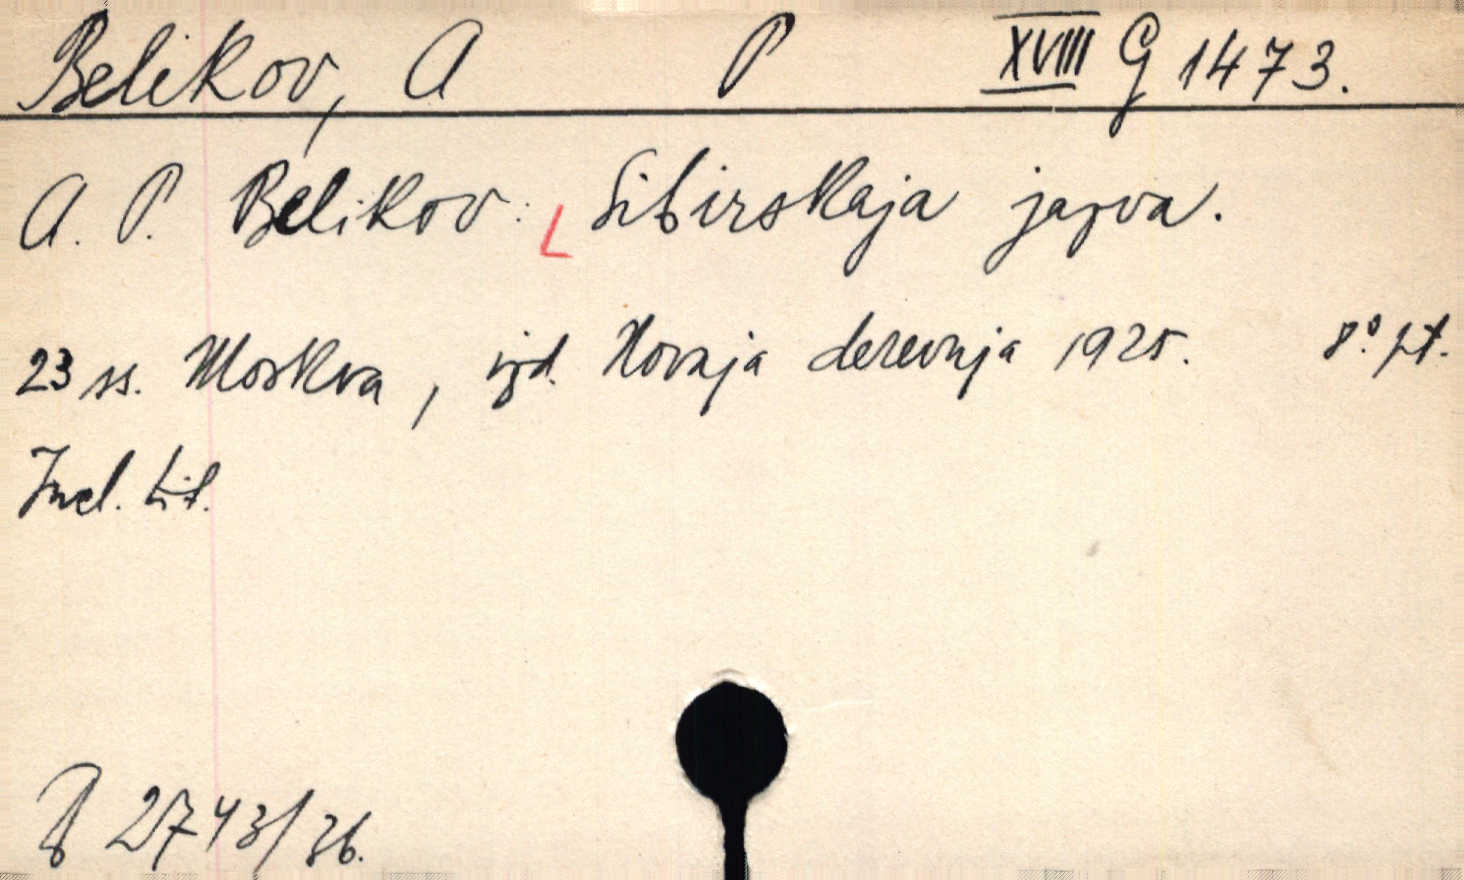 Belikov, A P XVIII G 1473.
A. P. Belikov: Sibirskaja jazva.
23 ss. Moskva, izd. Novaja derevnja 1925. 8.°
Incl. tit.
2743/36.